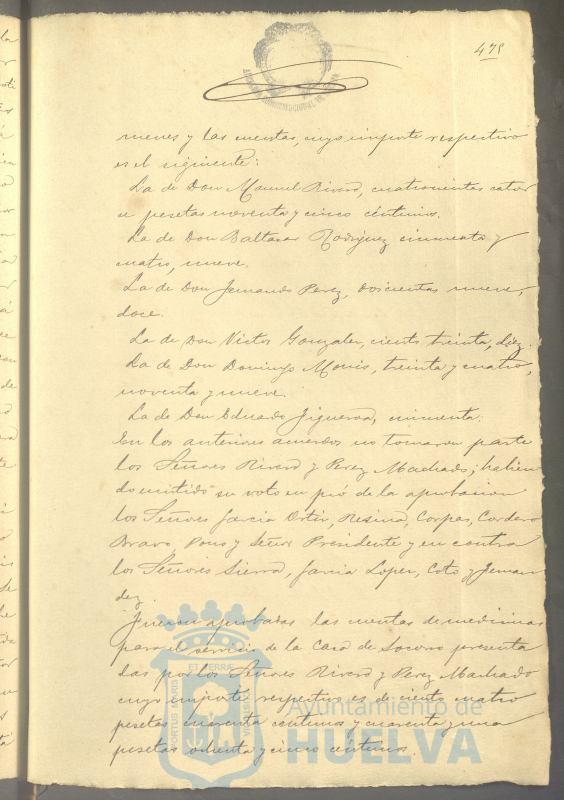 478
menes y las cuentas, cuyo importe respectivo
es el siguiente:
La de Don Manuel Rivero, cuatrocientas cator
ce pesetas noventa y cinco céntimos.
La de Don Baltasar Rodriguez cincuenta y
cuatro, nueve.
La de Don Fernando Perez, doscientas nueve,
doce.
La de Don Victor Gonzalez, ciento treinta, diez.
La de Don Domingo Monis, treinta y cuatro,
noventa y nueve.
La de Don Eduardo Figueroa, cincuenta.
En los anteriores acuerdos no tomaron parte
los Señores Rivero y Perez Machado; habien
do emitido su voto en pró de la aprobacion
los Señores Garcia Ortiz, Resina, Corpas, Cordero
Bravo, Pons y Señor Presidente y en contra
los Señores Sierra, Garcia Lopez, Coto y Fernan
dez.
Fueron aprobadas las cuentas de medicinas
para el servicio de la Casa de Socorro presenta
das por los Señores Rivero y Perez Machado
cuyo importe respectivo es de ciento cuatro
pesetas cuarenta centimos y cuarenta y una
pesetas ochenta y cinco céntimos.
Ayuntamiento de
HUELVA